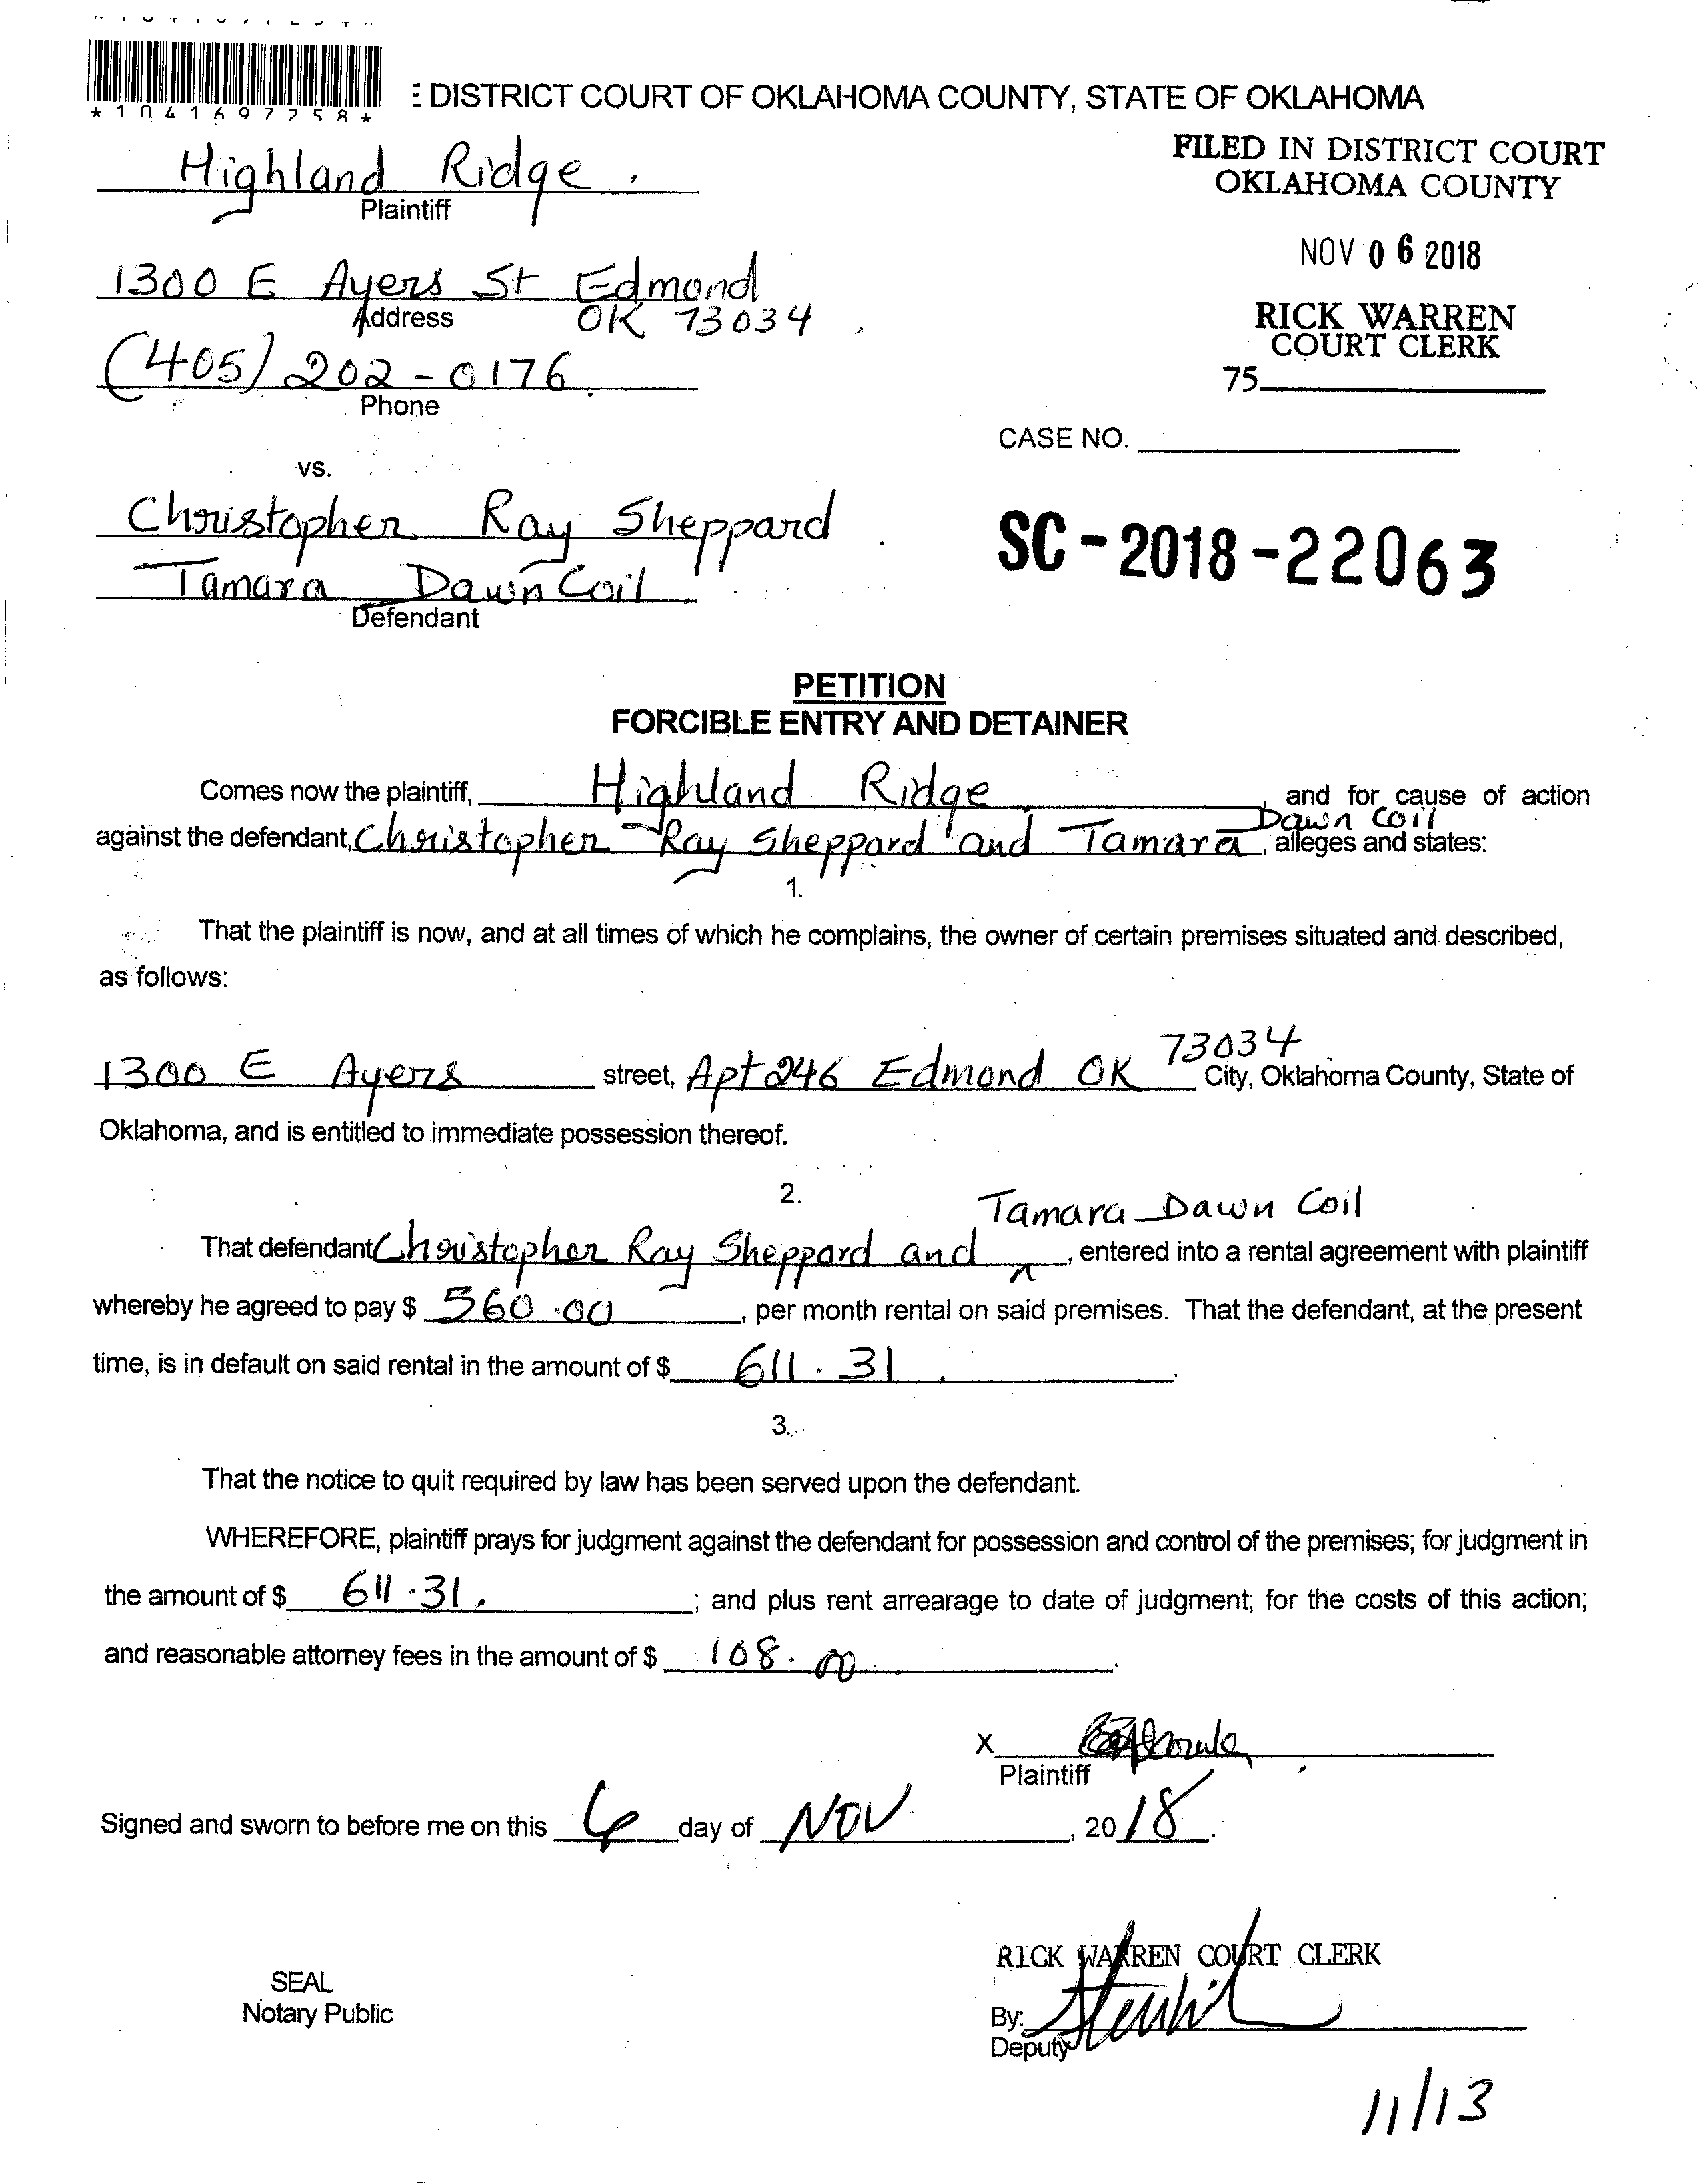 *1041697258*
DISTRICT COURT OF OKLAHOMA COUNTY, STATE OF OKLAHOMA
FILED IN DISTRICT COURT
OKLAHOMA COUNTY
Highland Ridge
Plaintiff
NOV 06 2018
1300 E Ayers St Edmond
OK 73034
Address
RICK WARREN
COURT CLERK
(405) 202-0176
Phone
75
CASE NO.
vs.
Christopher Ray Sheppard
SC-2018-22063
Tamara Dawn Coil
Defendant
PETITION
FORCIBLE ENTRY AND DETAINER
Comes now the plaintiff, Highland Ridge, and for cause of action
against the defendant, Christopher Ray Sheppard and Tamara Dawn Coil, alleges and states:
1.
That the plaintiff is now, and at all times of which he complains, the owner of certain premises situated and described,
as follows:
1300 E Ayers street, Apt 246 Edmond OK 73034 City, Oklahoma County, State of
Oklahoma, and is entitled to immediate possession thereof.
2.
That defendant Christopher Ray Sheppard and Tamara Dawn Coil, entered into a rental agreement with plaintiff
whereby he agreed to pay $ 560.00, per month rental on said premises. That the defendant, at the present
time, is in default on said rental in the amount of $ 611.31.
3.
That the notice to quit required by law has been served upon the defendant.
WHEREFORE, plaintiff prays for judgment against the defendant for possession and control of the premises; for judgment in
the amount of $ 611.31.; and plus rent arrearage to date of judgment; for the costs of this action;
and reasonable attorney fees in the amount of $ 108.00.
X
Plaintiff
Signed and sworn to before me on this 6 day of NOV, 2018.
RICK WARREN COURT CLERK
SEAL
Notary Public
By:
Deputy
11/13